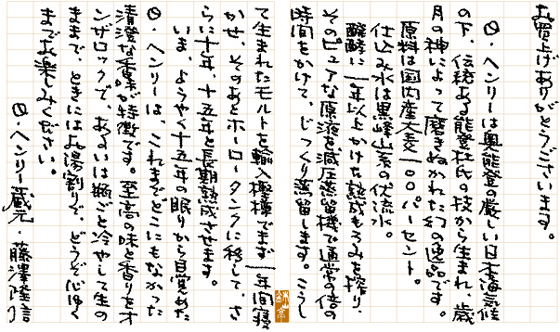 お買上げありがとうございます。
ヘンリーは奥能登の厳しい日本海気候
の下、伝統ある能登杜氏の技から生まれ、歳
月の神によって磨きぬかれた幻の逸品です。
原料は国内産大麦一〇〇パーセント。
仕込み水は黒峰山系の伏流水。
醗酵に一年以上かけた熟成もろみを搾り、
そのピュアな原液を減圧蒸留機で通常の倍の
時間をかけて、じっくり蒸留します。こうし
て生まれたモルトを輸入樫樽でまず一年間寝
かせ、そのあとホーロータンクに移して、さ
らに十年、十五年と長期熟成させます。
いま、ようやく十五年の眠りから目覚めた
・ヘンリーは、これまでどこにもなかった
清澄な香味が特徴です。至高の味と香りをオ
ンザロックで、あるいは瓶ごと冷やして生の
ままで、ときにはお湯割りで、どうぞ心ゆく
までお楽しみください。
・ヘンリー蔵元・藤澤隆信